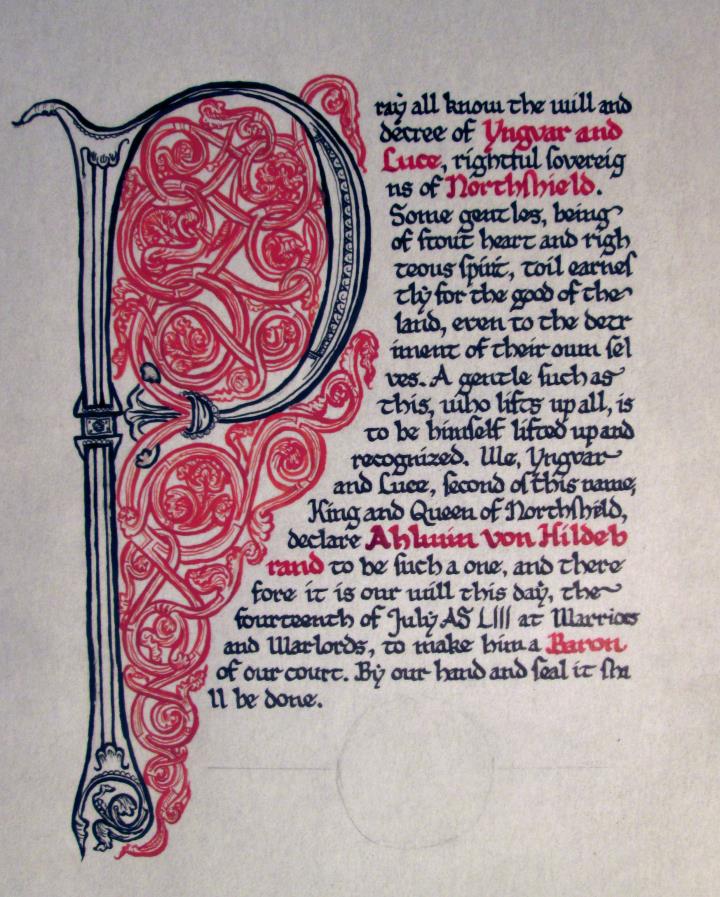 Pray all know the will and
decree of Yngvar and
Luce, rightful sovereig
ns of Northshield.
Some gentles, being
of stout heart and righ
teous spirit, toil earnes
tly for the good of the
land, even to the detr
iment of their own sel
ves. A gentle such as
this, who lifts up all, is
to be himself lifted up and
recognized. We, Yngvar
and Luce, second of this name,
King and Queen of Northshield,
declare Ahlwin von Hildeb
rand to be such a one, and there
fore it is our will this day, the
fourteenth of July AS LIII at Warriors
and Warlords, to make him a Baron
of our court. By our hand and seal it sha
ll be done.